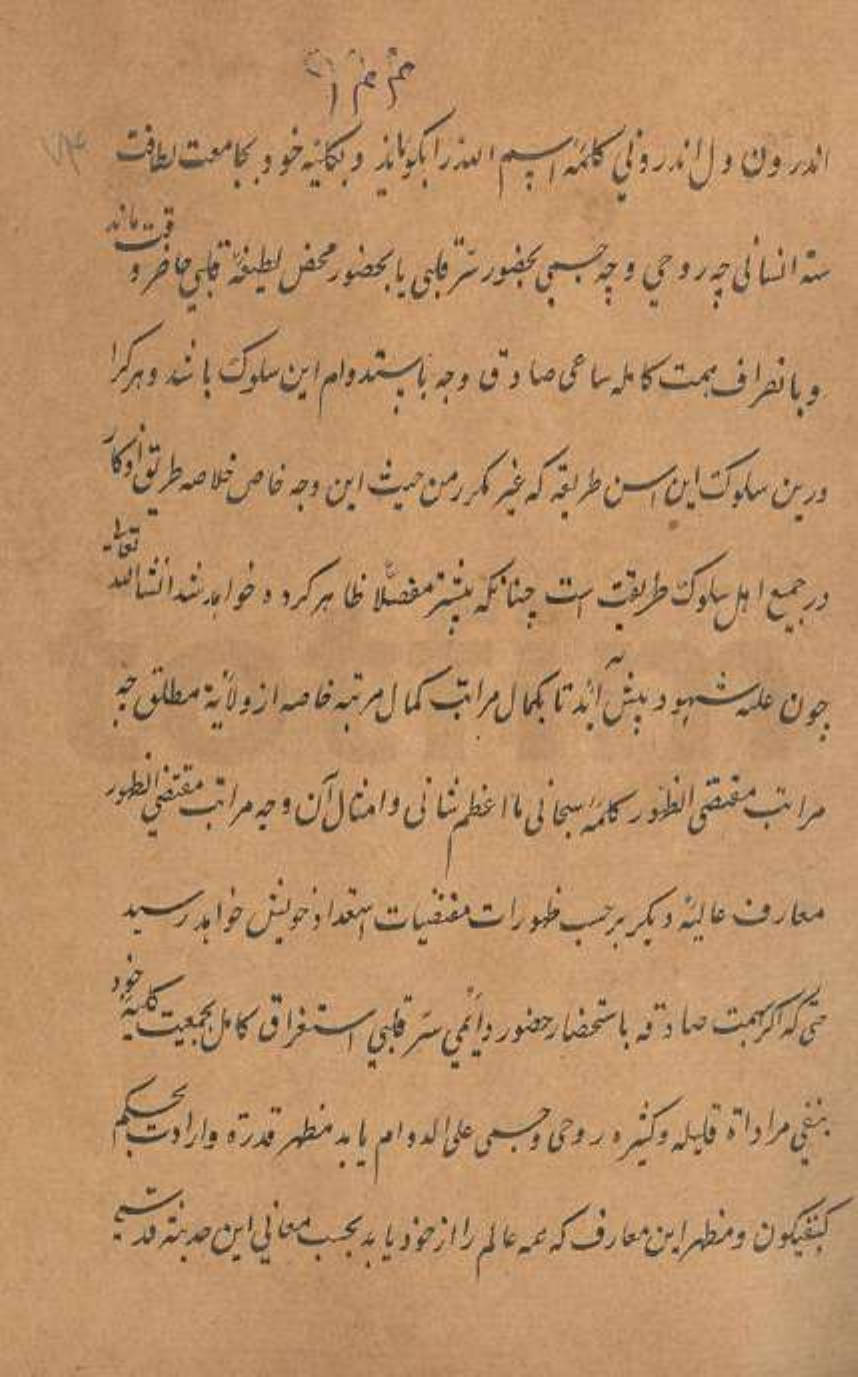 اندرون دل اندرونی کلمهٔ اسم الله را بگویاند و بکلیهٔ خود بجامعت لطافت
ستهٔ انسانی چه روحی و چه جسمی بحضور سرّ قلبی یا بحضور محض لطیفهٔ قلبی حاضر و قوت ماند
و بانصراف همت کامله ساعی صادق وجه باستدوام این سلوک باشد و هرکرا
درین سلوک این احسن طریقه که غیر مکرر من حیث این وجه خاص خلاصه طریق اذکار
در جمیع اهل سلوک طریقت است چنانکه پیشتر مفصّلا ظاهر کرده خواهد شد انشاالله تعالی
چون غلبهٔ شهود پیش آید تا بکمال مراتب کمال مرتبه خاصه از ولایة مطلق چه
مراتب مقتضی الظهور کلمهٔ سبحانی ما اعظم شانی و امثال آن و چه مراتب مقتضی الظهور
معارف عالیهٔ دیگر برحسب ظهورات مقتضیات استعداد خویش خواهد رسید
حتی که اگر بهمت صادقه باستحضار حضور دائمی سرّ قلبی استغراق کامل بجمعیت کلیهٔ خود
بنفی مراداة قلیله و کثیره روحی و جسمی علی الدوام یابد مظهر قدرة و ارادت بحکم
کن فیکون و مظهر این معارف که همه عالم را از خود یابد بحسب معانی این حدیثهٔ قدسی